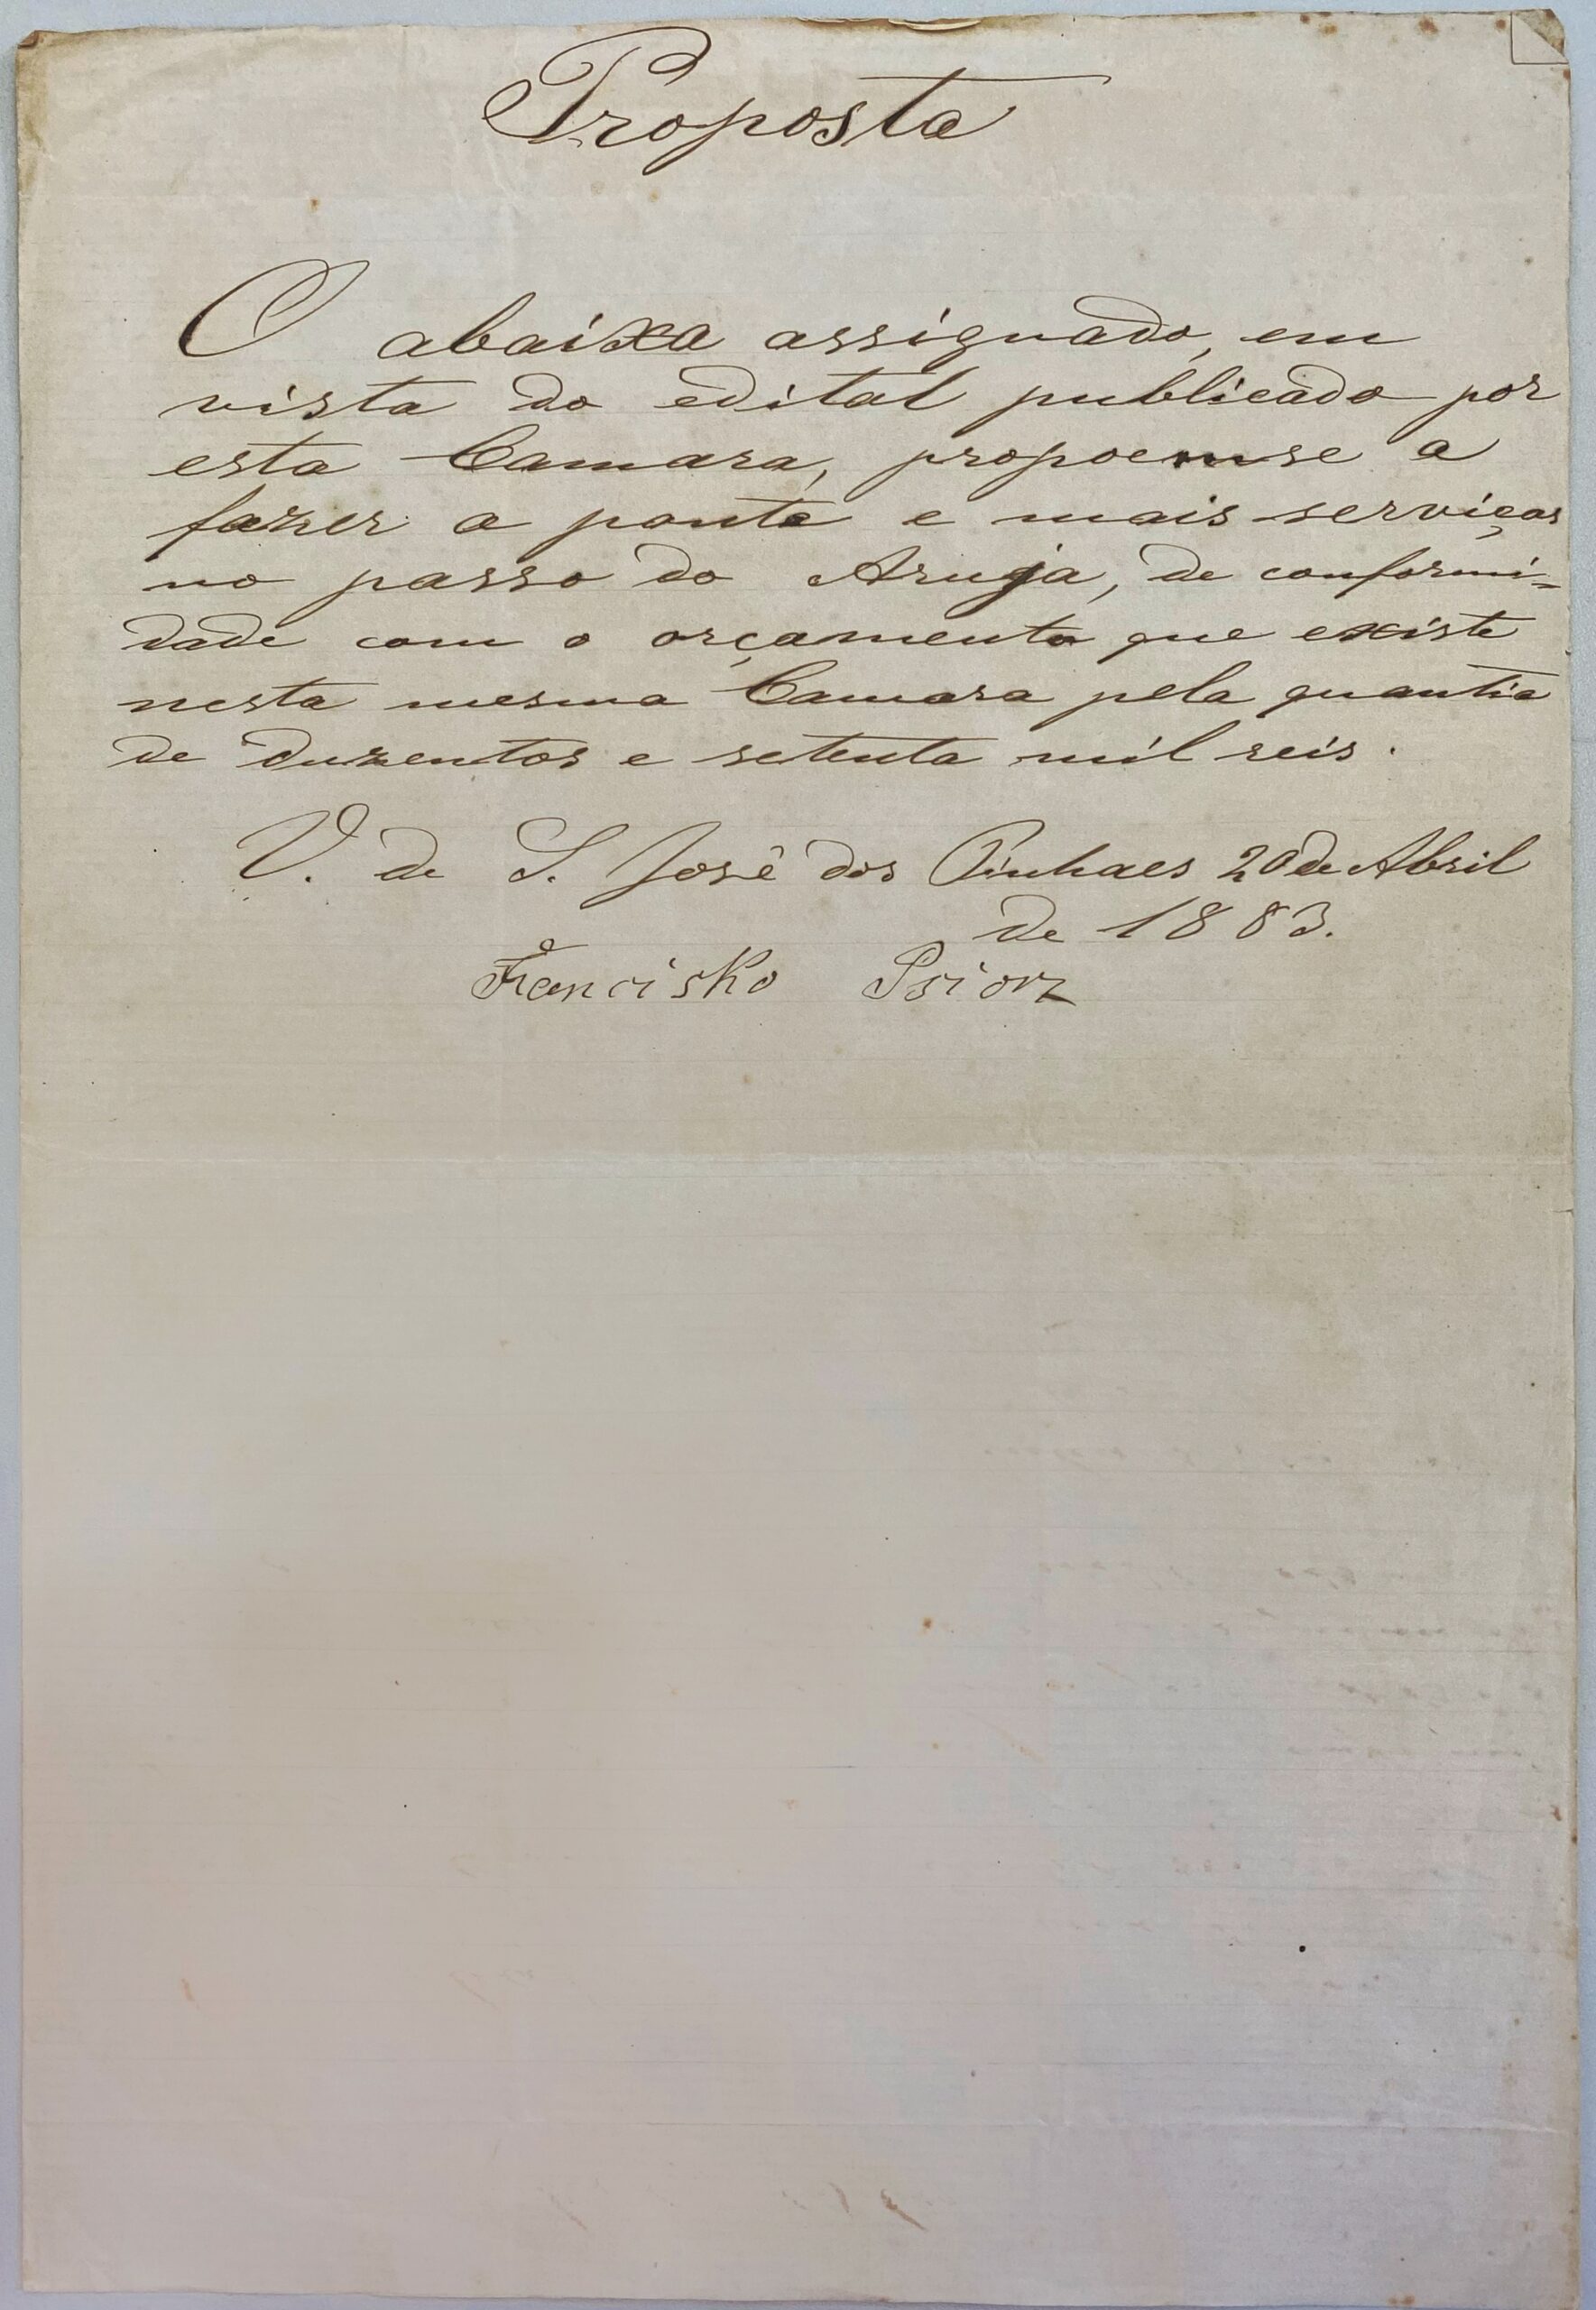 Proposta
O abaixo assignado, em
vista do edital publicado por
esta Camara, propoem-se a
fazer a ponte e mais serviços
no passo do Aruja, de conformi=
dade com o orçamento que existe
nesta mesma Camara pela quantia
de duzentos e setenta mil reis.
V. de S. José dos Pinhaes 20 de Abril
de 1883.
Francisko Psiorz